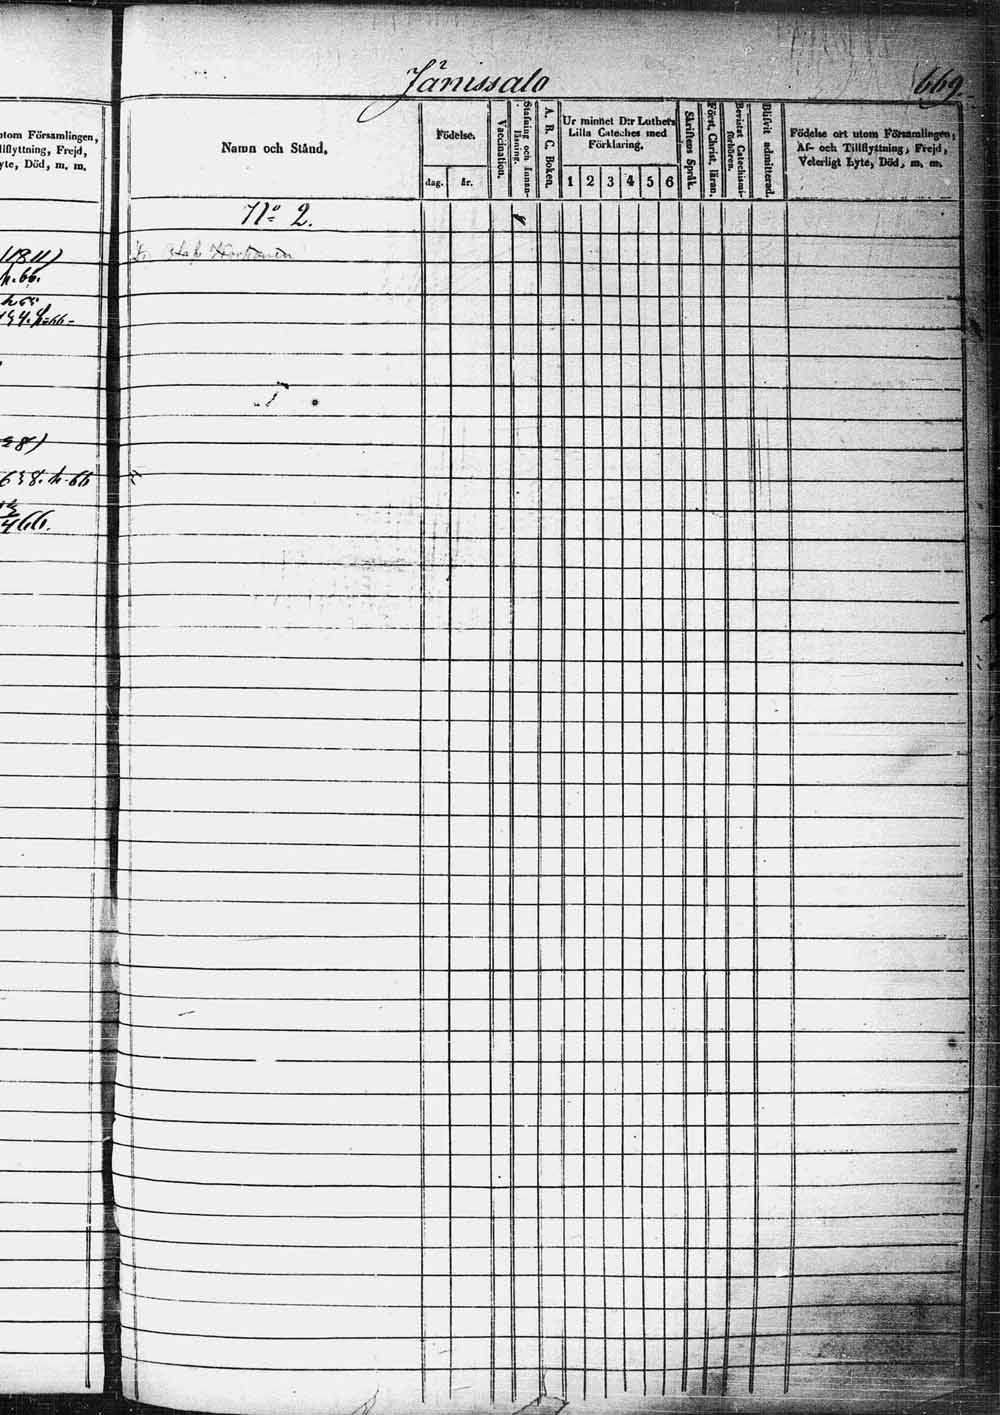 Jänissalo
669.
utom Församlingen,
Tillflyttning, Frejd,
Lyte, Död, m. m.
1811)
p. 66.
638. p. 66
466.
Namn och Stånd.
Födelse.
dag. år.
Vaccination.
Stafning och Innan-
läsning.
A. B. C. Boken.
Ur minnet D:r Luthers
Lilla Cateches med
Förklaring.
1 2 3 4 5 6
Skriftens Språk.
Först. Christ. läran.
Bevistat Catechismi-
förhören.
Blifvit admitterad.
Födelse ort utom Församlingen,
Af- och Tillflyttning, Frejd,
Veterligt Lyte, Död, m. m.
No 2.